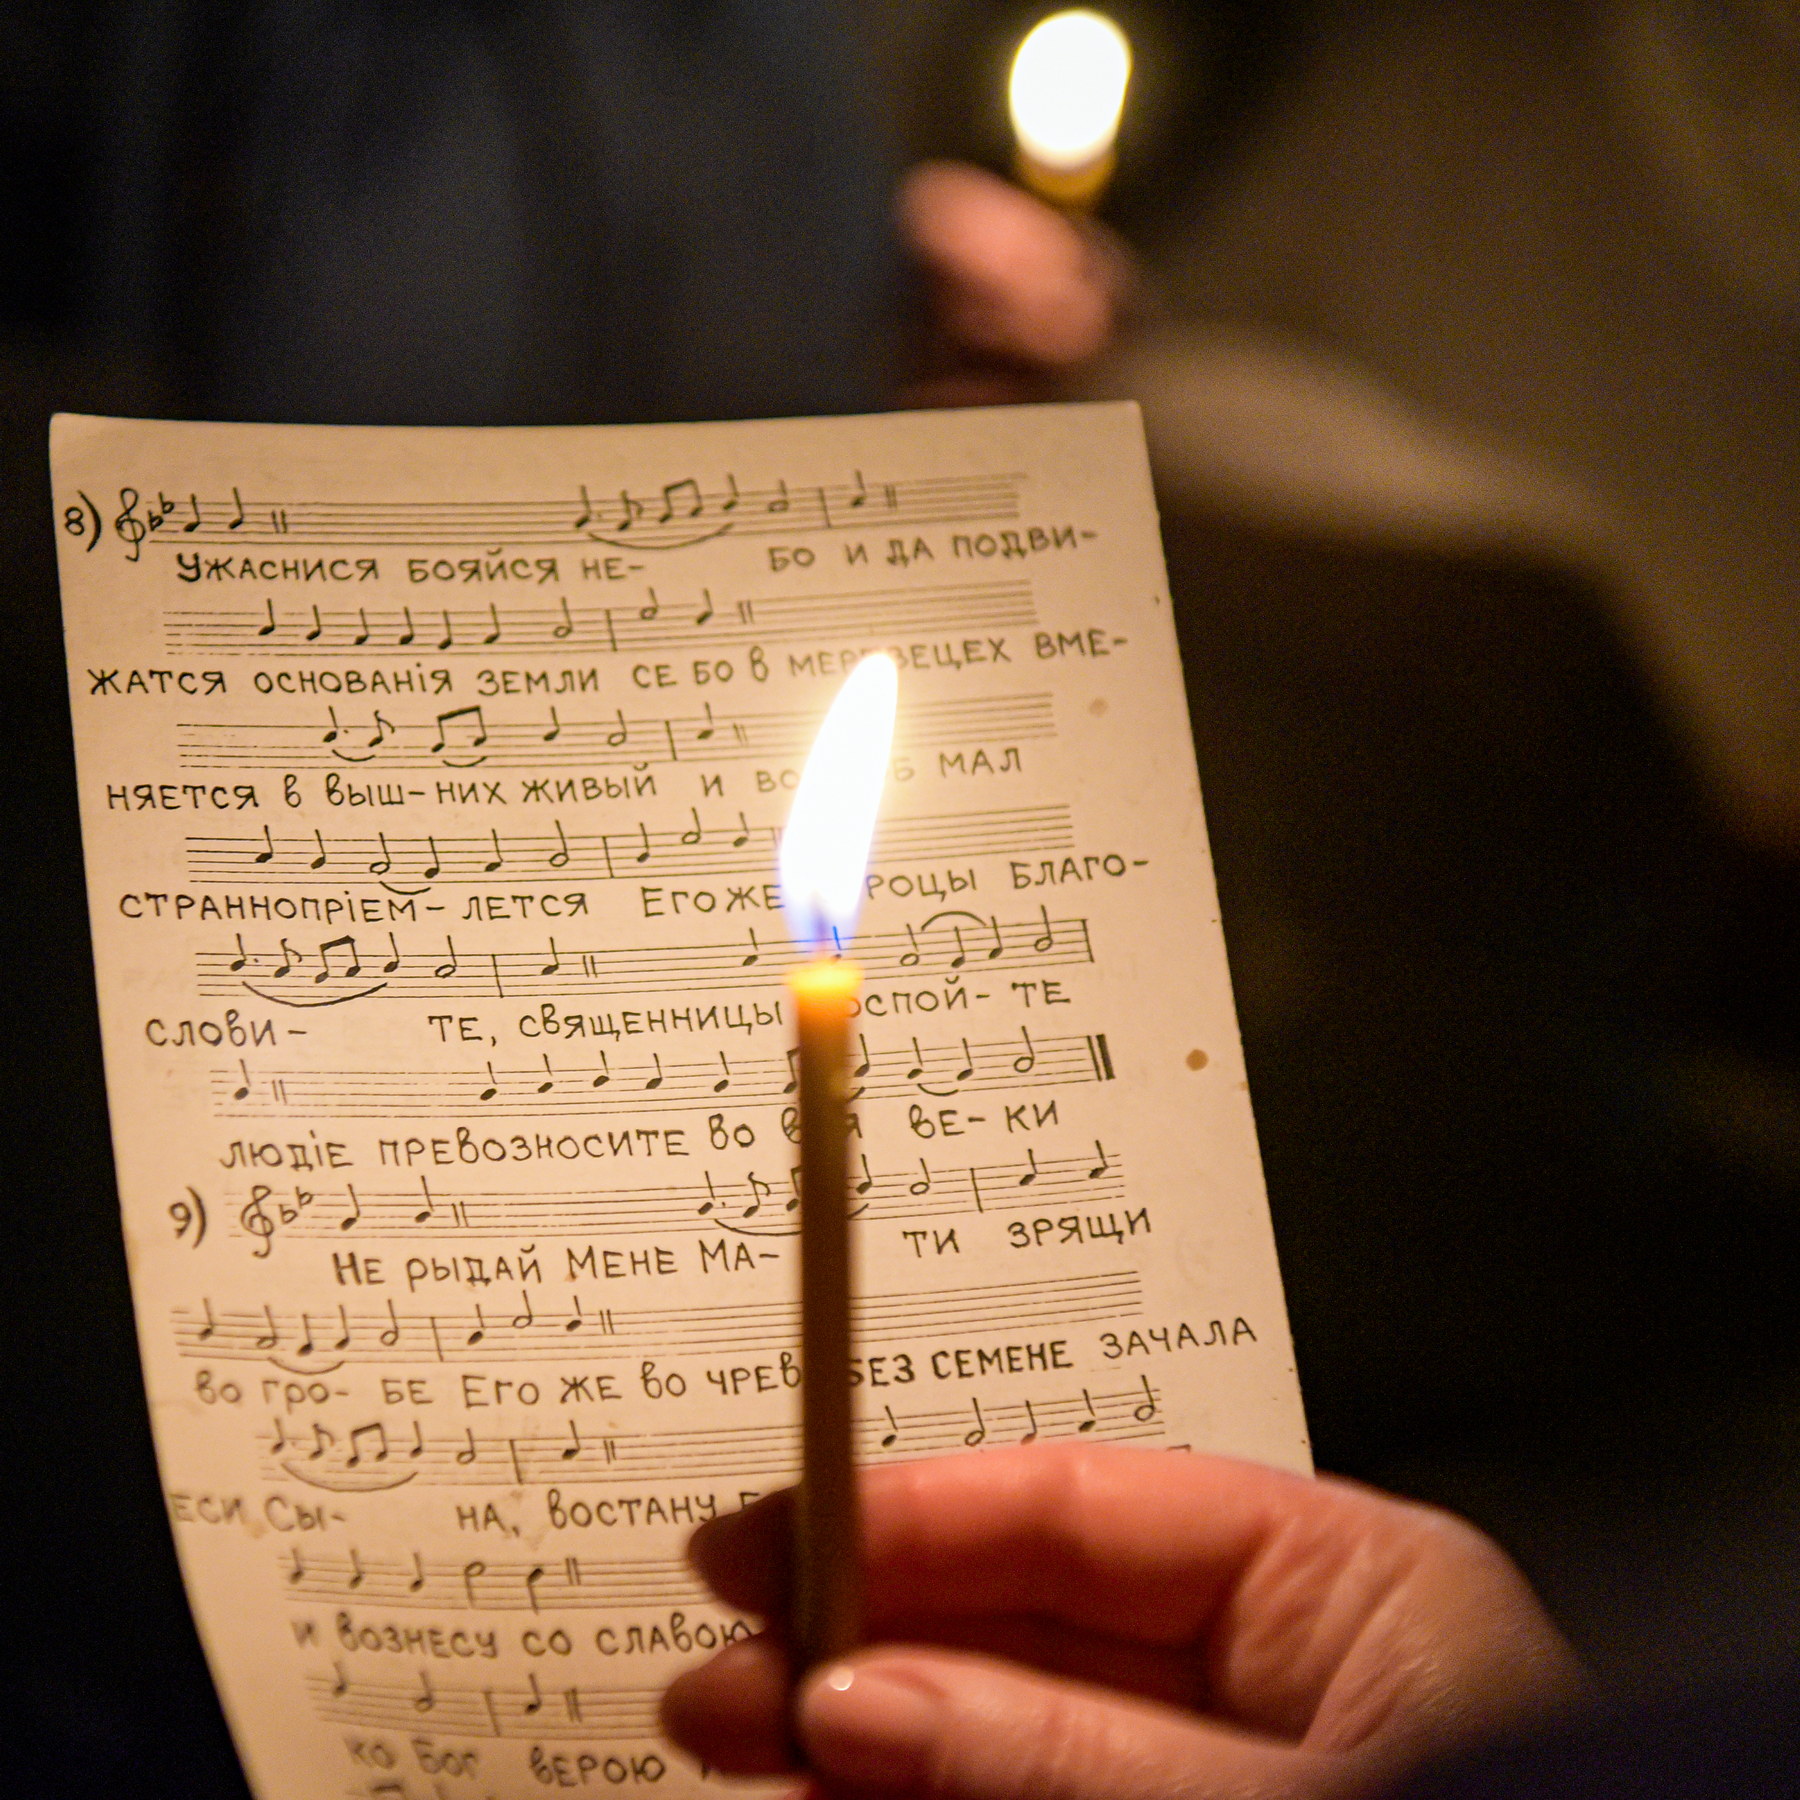 8)
УЖАСНИСЯ БОЯЙСЯ НЕ- БО И ДА ПОДВИ-
ЖАТСЯ ОСНОВАНіЯ ЗЕМЛИ СЕ БО В МЕРТВЕЦЕХ ВМЕ-
НЯЕТСЯ В ВЫШ-НИХ ЖИВЫЙ И МАЛ
СТРАННОПРіЕМ-ЛЕТСЯ ЕГОЖЕ БЛАГО-
СЛОВИ- ТЕ, СВЯЩЕННИЦЫ ТЕ
ЛЮДіЕ ПРЕВОЗНОСИТЕ ВО ВЕ-КИ
9)
НЕ РЫДАЙ МЕНЕ МА- ТИ ЗРЯЩИ
ВО ГРО- БЕ ЕГО ЖЕ ВО БЕЗ СЕМЕНЕ ЗАЧАЛА
ЕСИ СЫ- НА, ВОСТАНУ
И ВОЗНЕСУ СО СЛАВОЮ
КО БОГ ВЕРОЮ